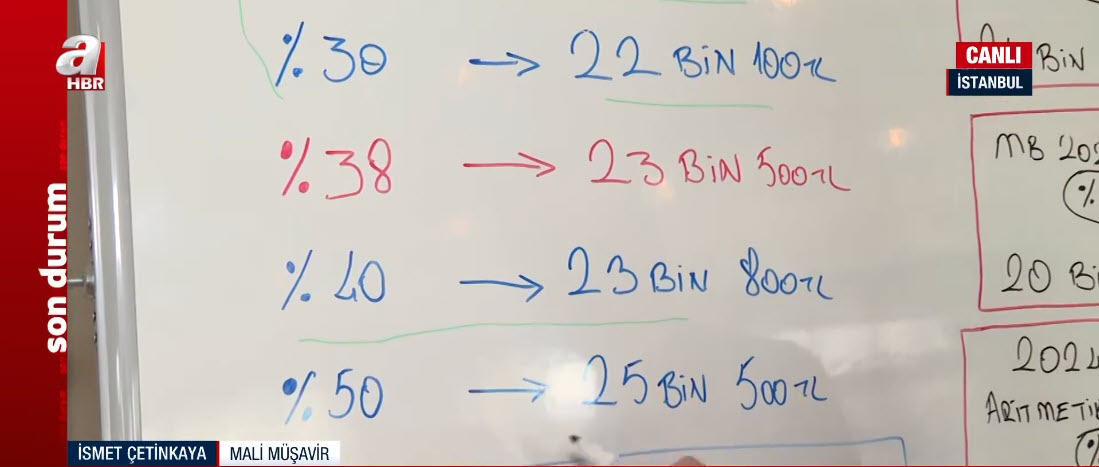 a
HBR
son durum
CANLI
İSTANBUL
%30 → 22 BİN 100TL
%38 → 23 BİN 500TL
%40 → 23 BİN 800TL
%50 → 25 BİN 500TL
BİN
MB
%
20
ARİTMETİK
%
İSMET ÇETİNKAYA
MALİ MÜŞAVİR